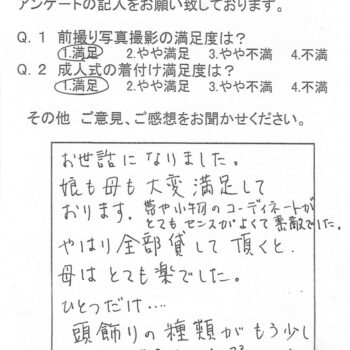 アンケートの記入をお願い致しております。
Q. 1 前撮り写真撮影の満足度は?
1.満足 2.やや満足 3.やや不満 4.不満
Q. 2 成人式の着付け満足度は?
1.満足 2.やや満足 3.やや不満 4.不満
その他 ご意見、ご感想をお聞かせください。
お世話になりました。
娘も母も大変満足して
おります。帯や小物のコーディネートが
とてもセンスがよくて素敵でした。
やはり全部貸して頂くと、
母はとても楽でした。
ひとつだけ....
頭飾りの種類がもう少し